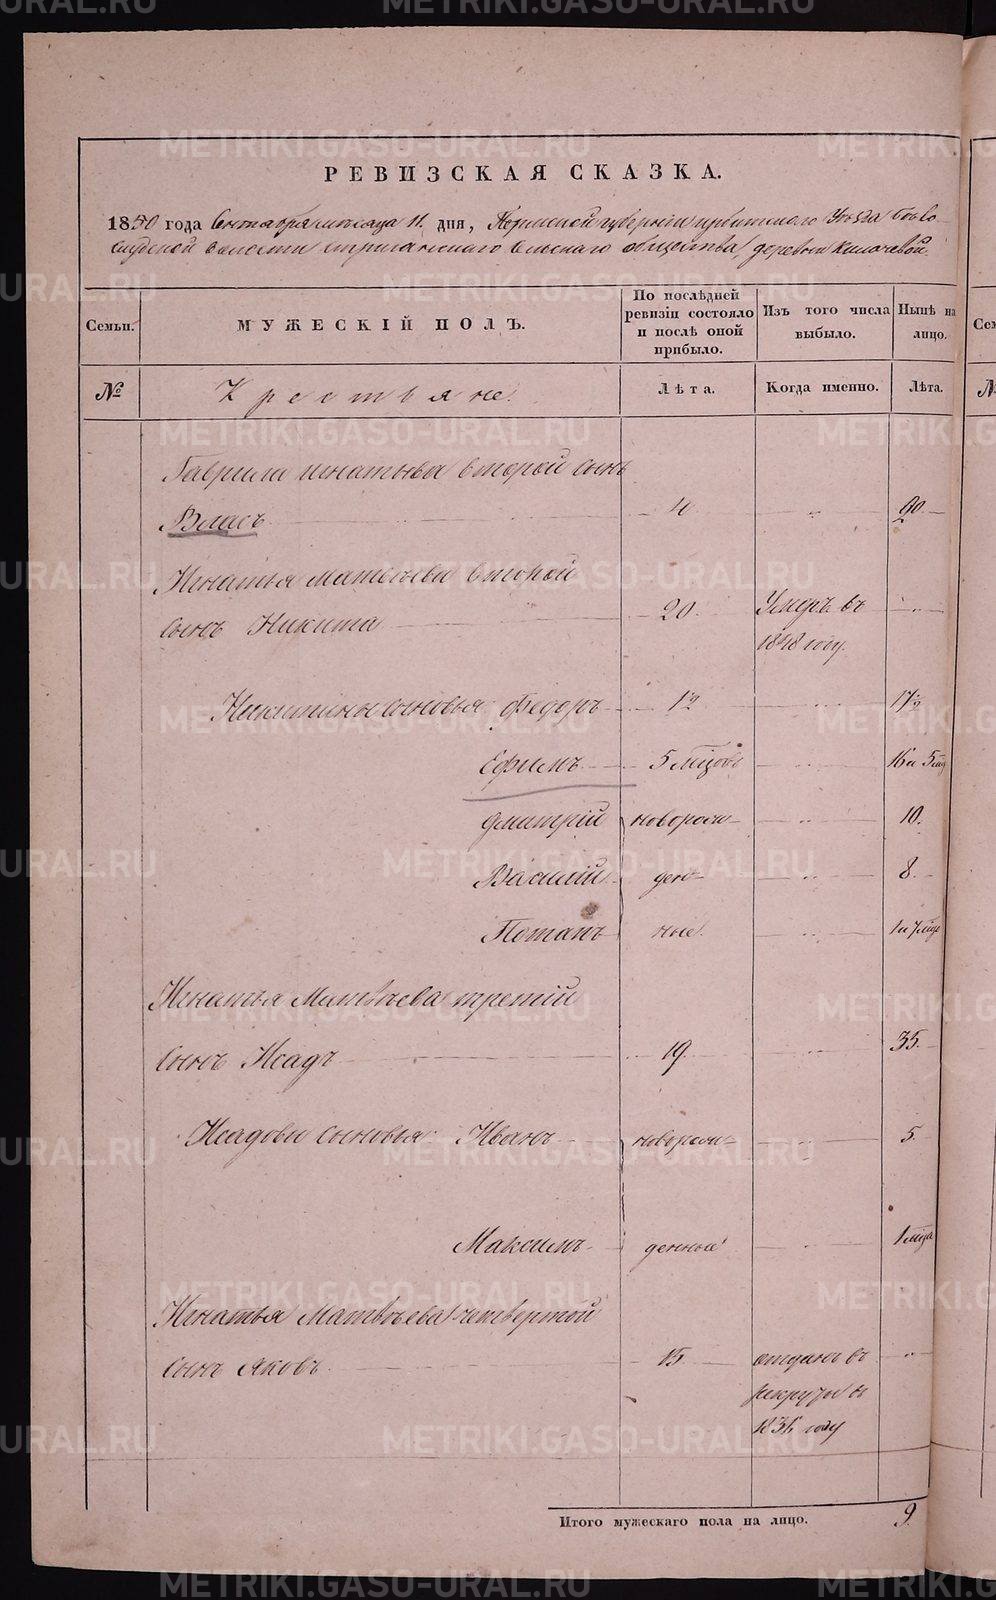 РЕВИЗСКАЯ СКАЗКА.
1850 года Сентября месяца 11. дня, Пермской губернии Ирбитского Уезда
волости Стриганского сельского общества, деревни Ключевой.
Семьи. МУЖЕСКІЙ ПОЛЪ. По послѣдней ревизіи состояло и послѣ оной прибыло. Изъ того числа выбыло. Нынѣ на лицо.
№ Крестьяне. Лѣта. Когда именно. Лѣта.
Гаврила Игнатьева второй сынъ
Власъ 4 " 20
Игнатья Матвѣева второй
сынъ Никита 20. Умеръ въ "
1848 году.
Никитины сыновья Федоръ 1½ " 17½
Ефимъ 5 мѣцовъ " 16 и 5 мѣц
Дмитрій новорож- " 10.
Василій ден- " 8.
Потапъ ные. " 1 и 7 мѣце
Игнатья Матвѣева третій
сынъ Исадъ 19. " 35.
Исадовы сыновья Иванъ новорож- 5.
Максимъ денные " 1 мѣца
Игнатья Матвѣева четвертой
сынъ Яковъ 15 отданъ въ "
рекруты въ
году
Итого мужескаго пола на лицо. 9.
METRIKI.GASO-URAL.RU